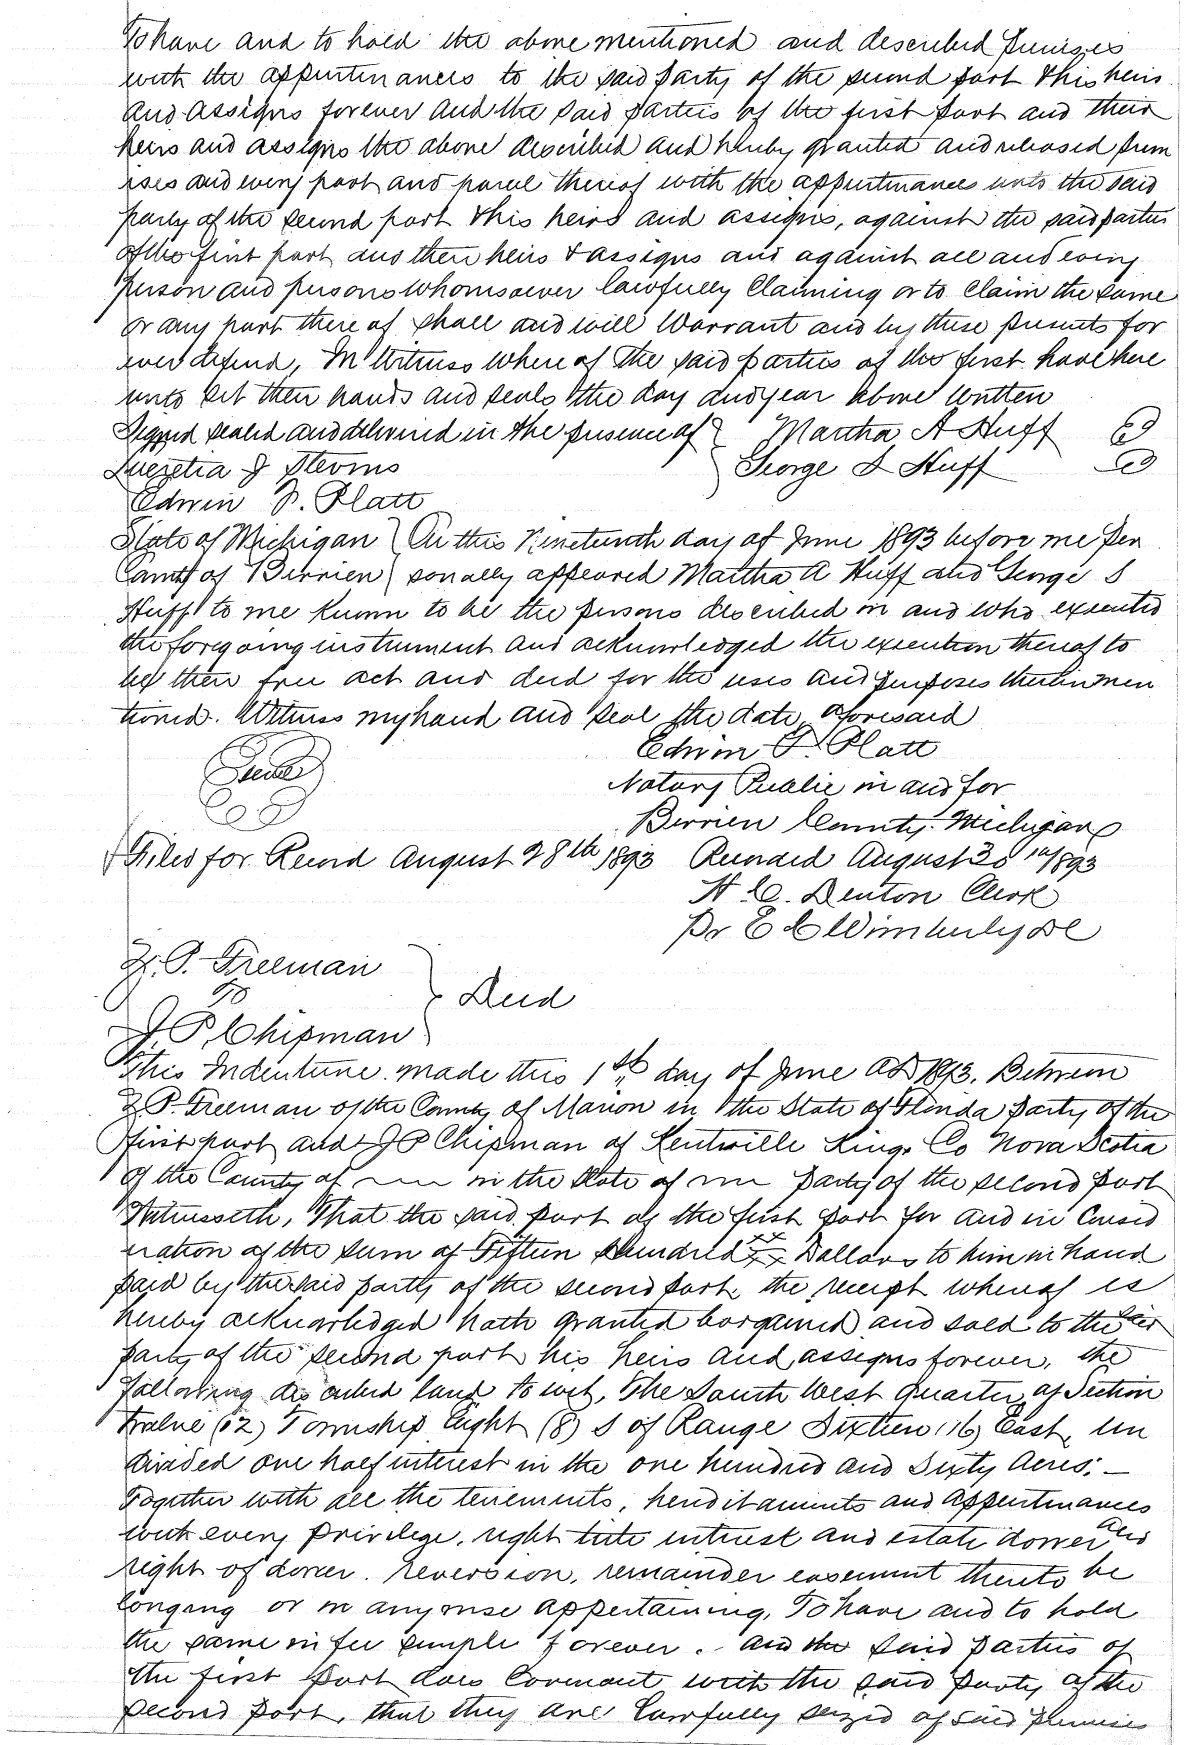 To have and to hold the above mentioned and described premises
with the appurtenances to the said party of the second part & his heirs
and assigns forever and the said parties of the first part and their
heirs and assigns the above described and hereby granted and released prem
ises and every part and parcel thereof with the appurtenances unto the said
party of the second part & his heirs and assigns, against the said parties
of the first part and their heirs & assigns and against all and every
person and persons whomsoever lawfully claiming or to claim the same
or any part there of shall and will Warrant and by these presents for
ever defend, In Witness where of the said parties of the first have here
unto set their hands and seals the day and year above written
Signed sealed and delivered in the presence of } Martha A Huff
Lucretia J Stevens George S Huff
Edwin P. Platt
State of Michigan } On this Nineteenth day of June 1893 before me per
County of Berrien } sonally appeared Martha A Huff and George S
Huff to me known to be the persons described in and who executed
the foregoing instrument and acknowledged the execution thereof to
be their free act and deed for the uses and purposes therein men
tioned. Witness my hand and seal the date aforesaid
Edwin P. Platt
Seal
Notary Public in and for
Berrien County Michigan
Filed for Record August 28th 1893 Recorded August 30th 1893
H. C. Denton Clerk
Pr E C Wimberly DC
Z. P. Freeman
To } Deed
J. P. Chipman
This Indenture made this 1st day of June AD 1893. Between
Z P. Freeman of the County of Marion in the State of Florida party of the
first part and J P Chipman of Kentville Kings Co Nova Scotia
of the County of in the State of party of the second part
Witnesseth, That the said part of the first part for and in Consid
eration of the sum of Fifteen Hundred xx/xx Dollars to him in hand
paid by the said party of the second part, the receipt whereof is
hereby acknowledged hath granted bargained and sold to the said
party of the second part his heirs and assigns forever, the
following described land to wit, The South West quarter of Section
Twelve (12) Township Eight (8) S of Range Sixteen (16) East, un
divided one half interest in the one hundred and sixty acres; —
Together with all the tenements, hereditaments and appurtenances
with every privilege, right title interest and estate dower and
right of dower, reversion, remainder easement thereto be
longing or in any wise appertaining, To have and to hold
the same in fee simple forever. And the said parties of
the first part does Covenant with the said party of the
second part, that they are lawfully seized of said premises